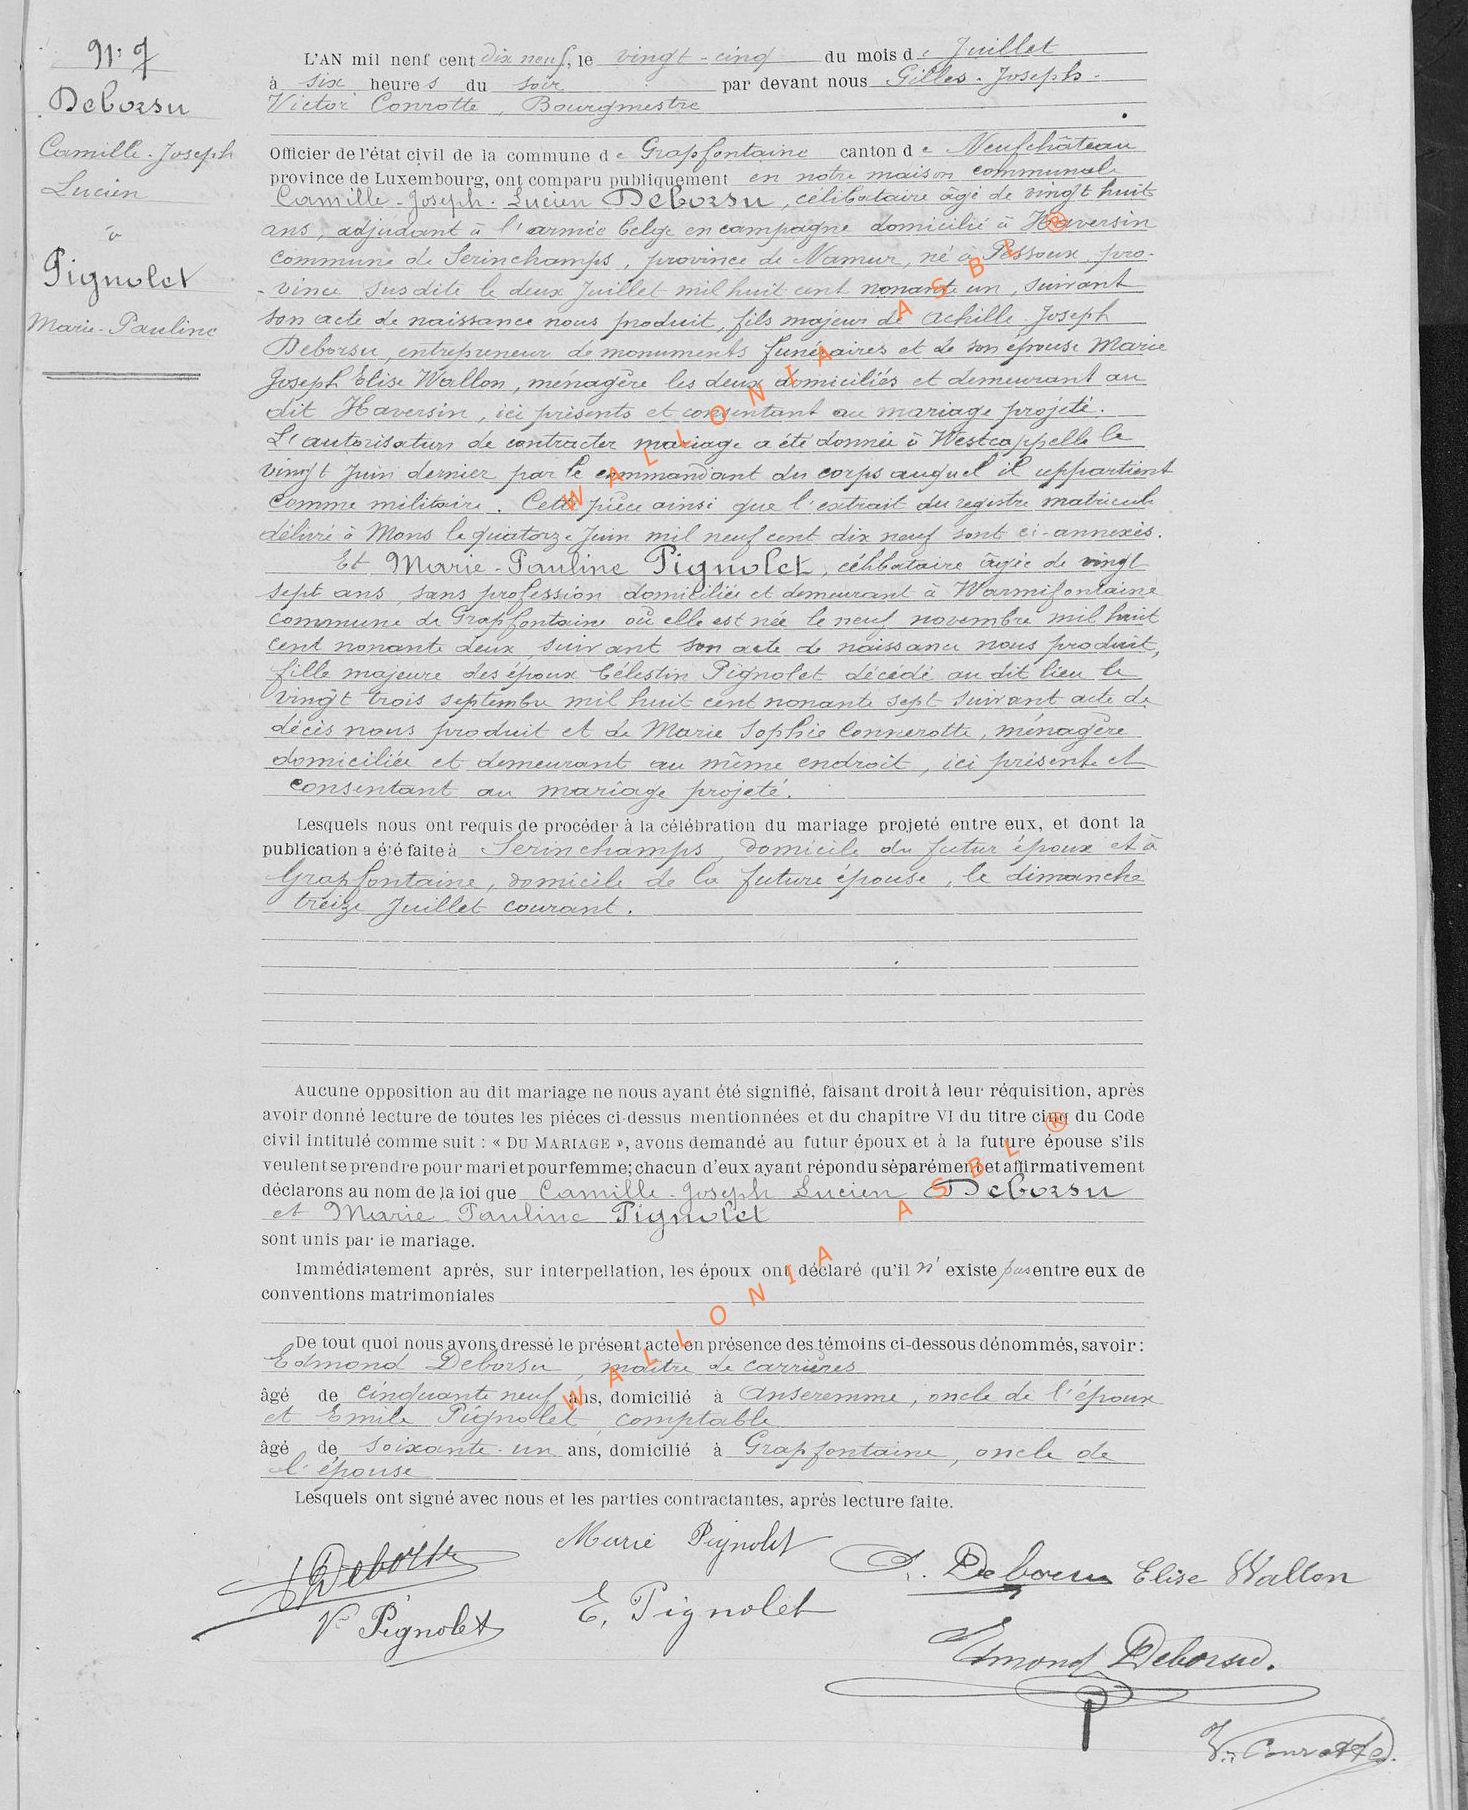 N° 7
Deborsu
Camille-Joseph
Lucien
&
Pignolet
Marie-Pauline
L'AN mil neuf cent dix neuf, le vingt-cinq du mois de Juillet
à six heures du soir par devant nous Gilles-Joseph-
Victor Conrotte, Bourgmestre
Officier de l'état civil de la commune de Grapfontaine canton de Neufchâteau
province de Luxembourg, ont comparu publiquement en notre maison communale
Camille-Joseph-Lucien Deborsu, célibataire âgé de vingt huit
ans, adjudant à l'armée belge en campagne domicilié à Haversin
commune de Serinchamps, province de Namur, né à Pessoux, pro-
-vince susdite le deux Juillet mil huit cent nonante un, suivant
son acte de naissance nous produit, fils majeur de Achille-Joseph
Deborsu, entrepreneur de monuments funéraires et de son épouse Marie
Joseph Elise Wallon, ménagère les deux domiciliés et demeurant au
dit Haversin, ici présents et consentant au mariage projeté.
L'autorisation de contracter mariage a été donnée à Westcappelle le
vingt Juin dernier par le commandant du corps auquel il appartient
comme militaire. Cette pièce ainsi que l'extrait du registre matricule
délivré à Mons le quatorze Juin mil neuf cent dix neuf sont ci-annexés.
Et Marie-Pauline Pignolet, célibataire âgée de vingt
sept ans, sans profession domiciliée et demeurant à Warmifontaine
commune de Grapfontaine où elle est née le neuf novembre mil huit
cent nonante deux suivant son acte de naissance nous produit,
fille majeure des époux Célestin Pignolet décédé au dit lieu le
vingt trois septembre mil huit cent nonante sept suivant acte de
décès nous produit et de Marie Sophie Connerotte, ménagère
domiciliée et demeurant au même endroit, ici présente et
consentant au mariage projeté.
Lesquels nous ont requis de procéder à la célébration du mariage projeté entre eux, et dont la
publication a été faite à Serinchamps, domicile du futur époux et à
Grapfontaine, domicile de la future épouse, le dimanche
treize Juillet courant.
Aucune opposition au dit mariage ne nous ayant été signifié, faisant droit à leur réquisition, après
avoir donné lecture de toutes les pièces ci-dessus mentionnées et du chapitre VI du titre cinq du Code
civil intitulé comme suit : « DU MARIAGE », avons demandé au futur époux et à la future épouse s'ils
veulent se prendre pour mari et pour femme; chacun d'eux ayant répondu séparément et affirmativement
déclarons au nom de la loi que Camille-Joseph Lucien Deborsu
et Marie Pauline Pignolet
sont unis par le mariage.
Immédiatement après, sur interpellation, les époux ont déclaré qu'il n'existe pas entre eux de
conventions matrimoniales
De tout quoi nous avons dressé le présent acte en présence des témoins ci-dessous dénommés, savoir :
Edmond Deborsu, maître de carrières
âgé de cinquante neuf ans, domicilié à Anseremme, oncle de l'époux
et Emile Pignolet, comptable
âgé de soixante-un ans, domicilié à Grapfontaine, oncle de
l'épouse
Lesquels ont signé avec nous et les parties contractantes, après lecture faite.
Marie Pignolet
Deborsu
Deborsu Elise Wallon
Ve Pignolet
E. Pignolet
Edmond Deborsu.
V. Conrotte.
WALLONIA ASBL ®
WALLONIA ASBL ®